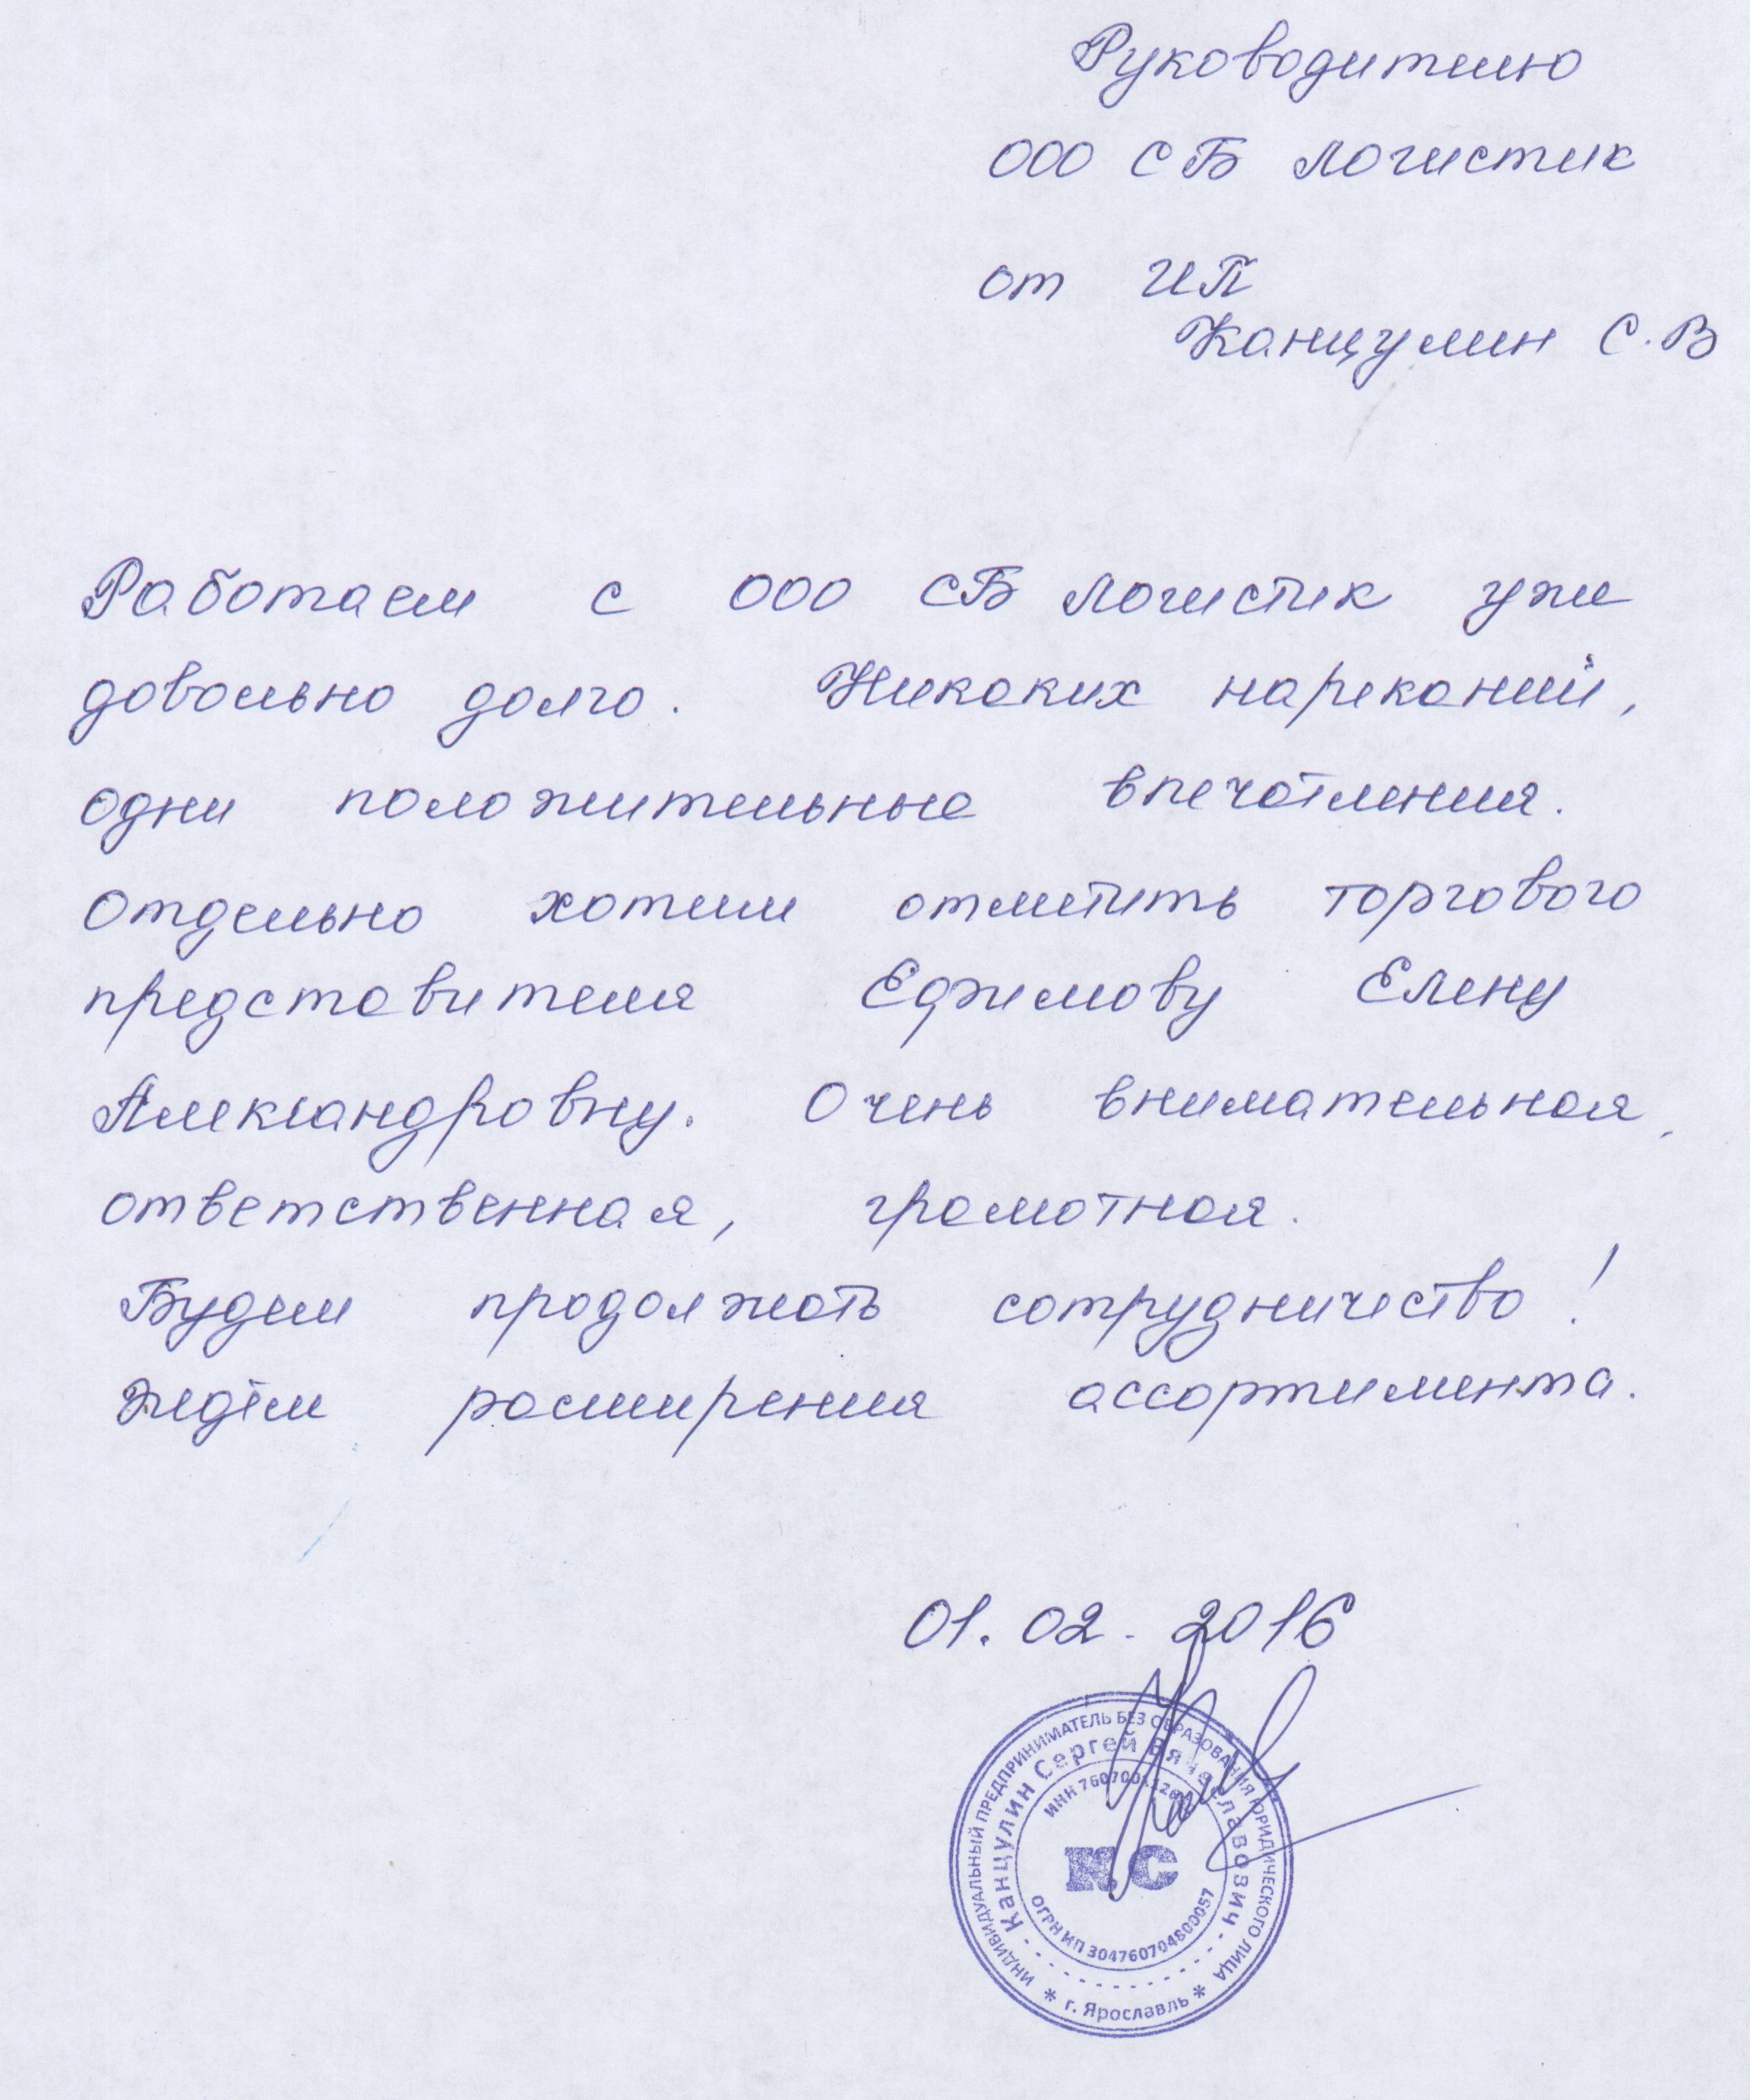 Руководителю
ООО СБ Логистик
от ИП
Канцулин С.В
Работаем с ООО СБ Логистик уже
довольно долго. Никаких нареканий,
одни положительные впечатления.
Отдельно хотим отметить торгового
представителя Ефимову Елену
Александровну. Очень внимательная,
ответственная, грамотная.
Будем продолжать сотрудничество!
Ждём расширения ассортимента.
01.02.2016
ИНДИВИДУАЛЬНЫЙ ПРЕДПРИНИМАТЕЛЬ БЕЗ ОБРАЗОВАНИЯ ЮРИДИЧЕСКОГО ЛИЦА
Канцулин Сергей Вячеславович
ИНН
КС
ОГРН ИП 304760704800057
* г. Ярославль *